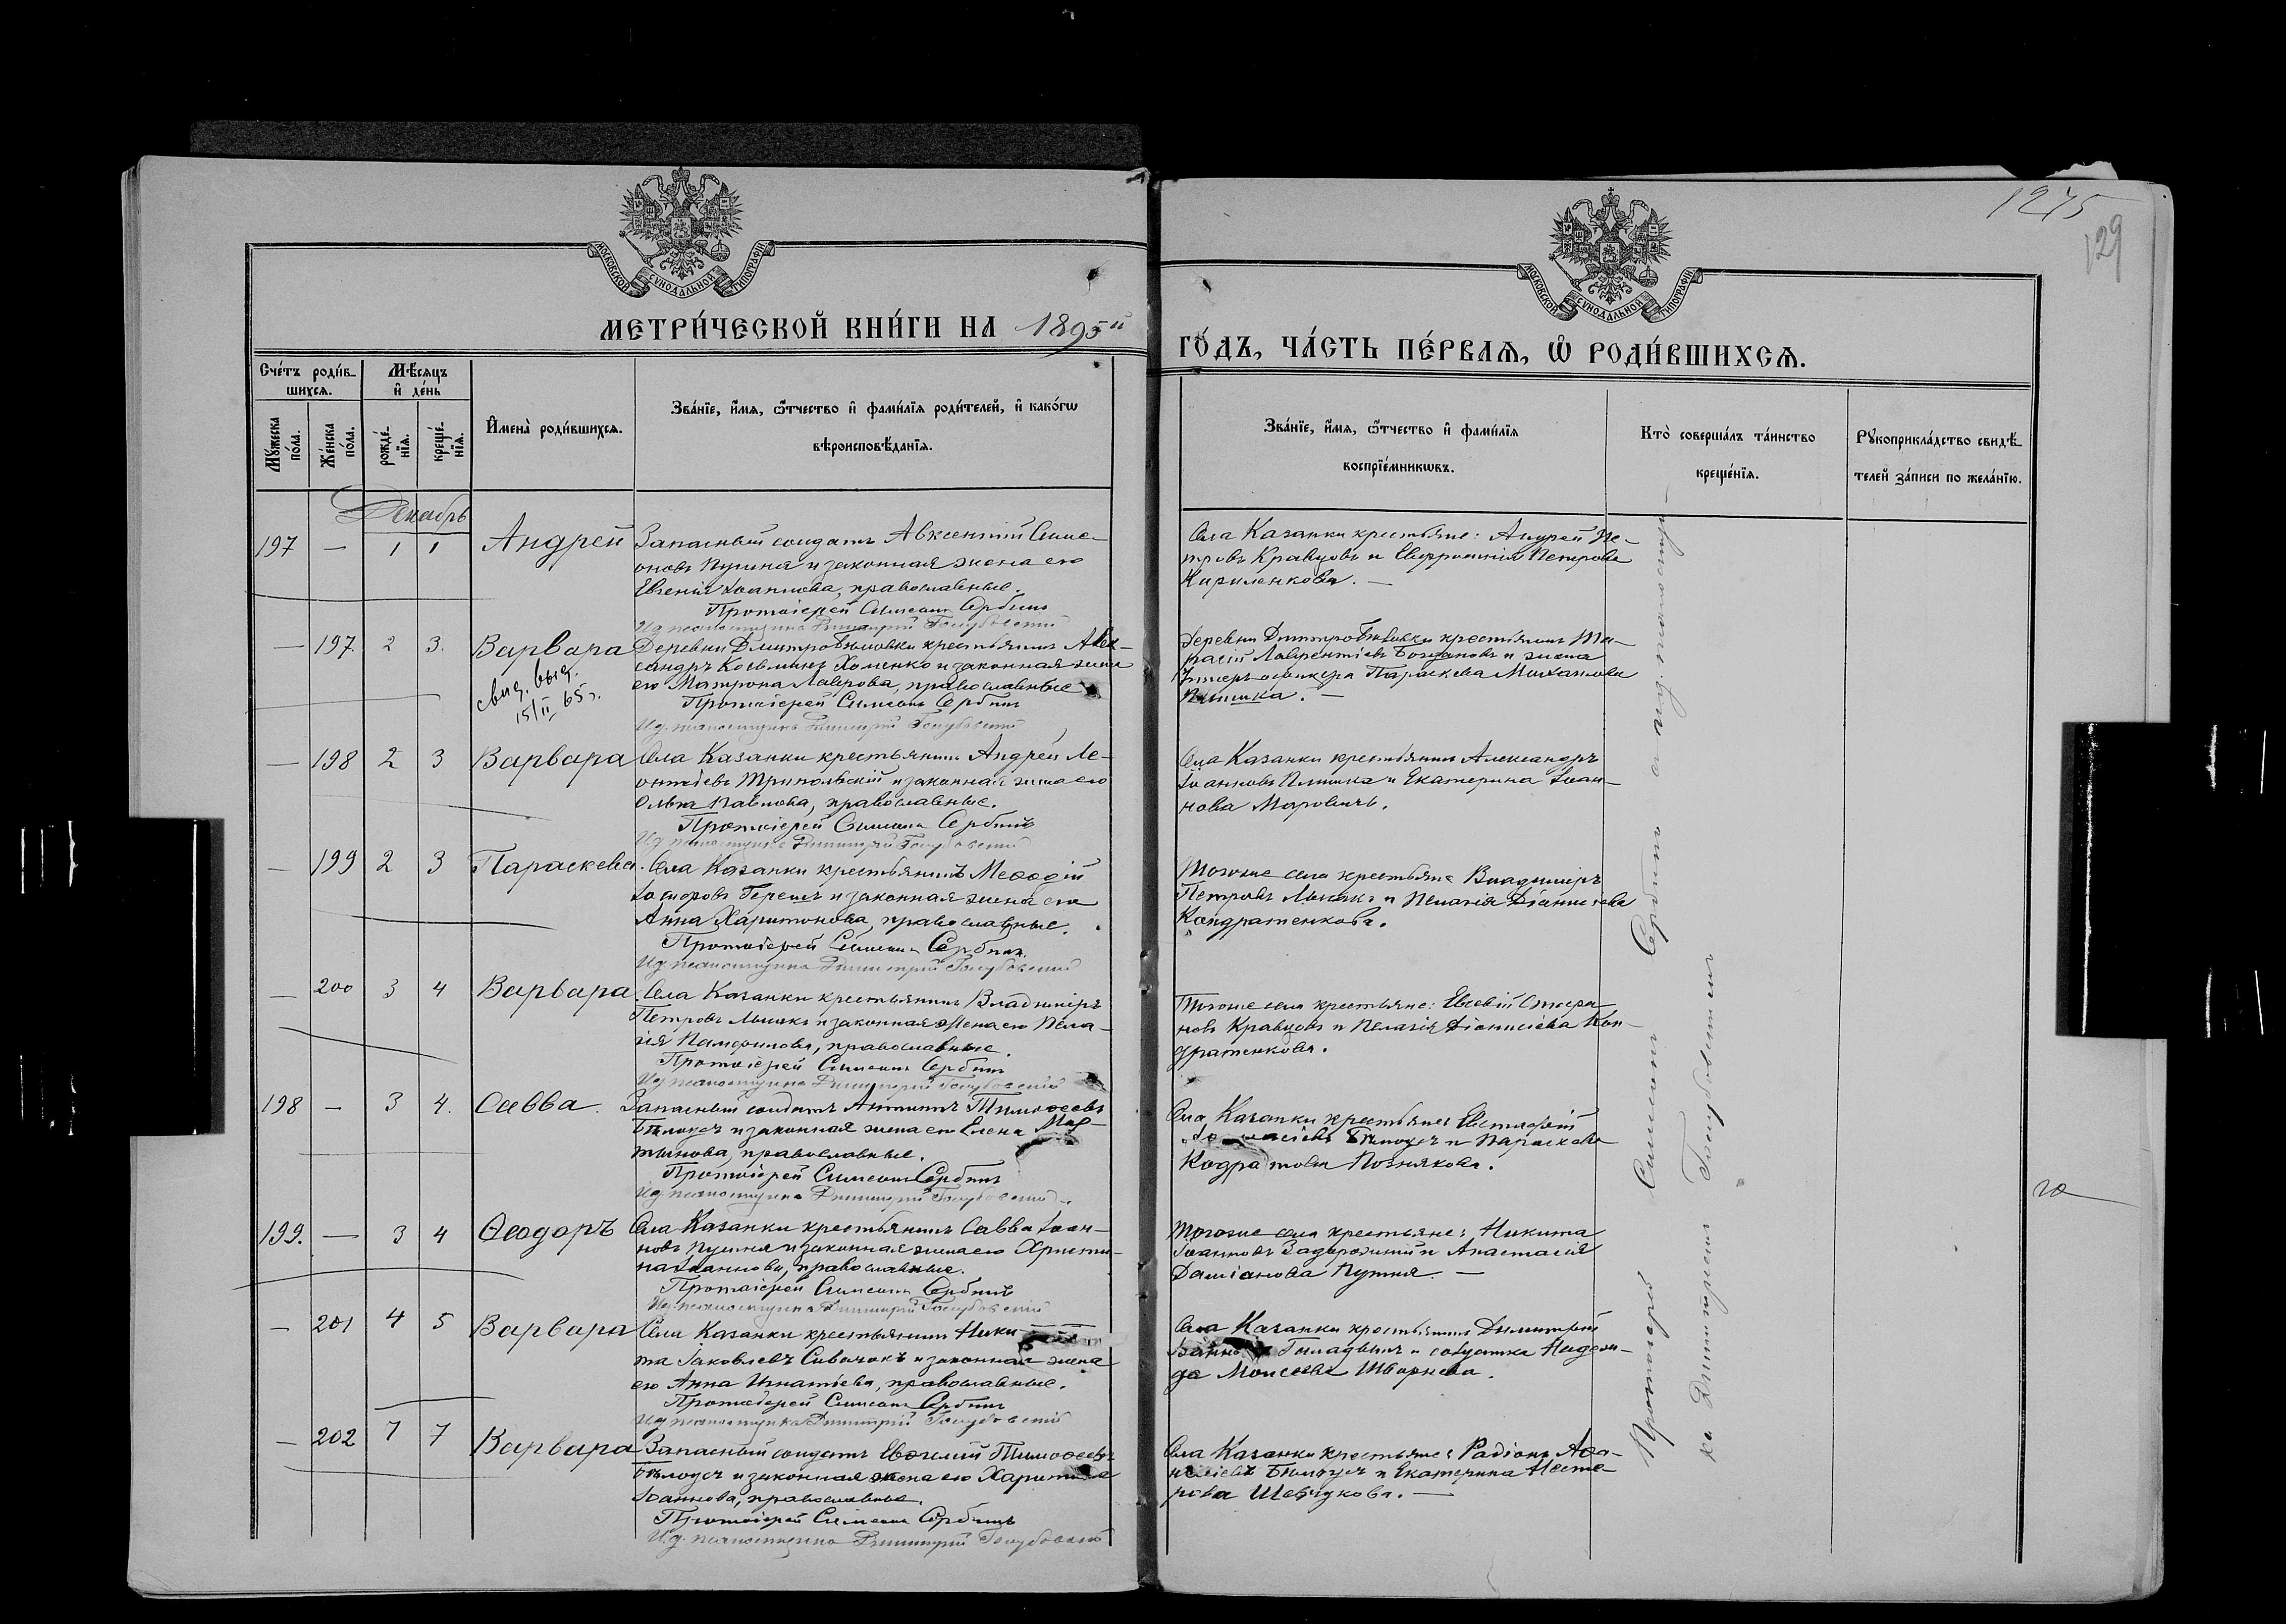 1275
129
МОСКОВСКОЙ СѴНОДАЛЬНОЙ ТИПОГРАФІИ
МОСКОВСКОЙ СѴНОДАЛЬНОЙ ТИПОГРАФІИ
МЕТРИ́ЧЕСКОЙ КНИ́ГИ НА 1895й
ГО́ДЪ, ЧА́СТЬ ПЕ́РВАѦ, Ѡ҆ РОДИ́ВШИХСѦ.
Сче́тъ роди́в-
шихсѧ.
Мѣ́сѧцъ
и҆ де́нь
Мꙋ́жеска
по́ла.
Же́нска
по́ла.
рожде́-
нїѧ.
креще́-
нїѧ.
И҆мена̀ роди́вшихсѧ.
Зва́нїе, и҆́мѧ, ѻ҆́тчество и҆ фами́лїѧ роди́телей, и҆ како́гѡ
вѣроисповѣ́данїѧ.
Зва́нїе, и҆́мѧ, ѻ҆́тчество и҆ фами́лїѧ
воспрїе́мникѡвъ.
Кто̀ соверша́лъ та́инство
креще́нїѧ.
Рꙋкоприкла́дство свидѣ́-
телей за́писи по жела́нїю.
Декабрь
197 — 1 1 Андрей
Запасный солдатъ Авксентій Симе-
оновъ Пушня и законная жена его
Евгенія Іоаннова, православные.
Протоіерей Симеонъ Сербинъ
Ид. псаломщика Димитрій Голубовскій
Села Казанки крестьяне: Андрей Пе-
тровъ Кравцовъ и Евфросинія Петрова
Кириленкова. —
— 197 2 3. Варвара
свид. выд.
15/II 65 г.
Деревни Дмитробѣловки крестьянинъ Алек-
сандръ Косьминъ Хоменко и законная жена
его Матрона Лаврова, православные
Протоіерей Симеонъ Сербинъ
Ид. псаломщика Димитрій Голубовскій
Деревни Дмитробѣловки крестьянинъ
Лаврентіевъ и жена
унтеръ-офицера Параскева Михаилова
— 198 2 3 Варвара
Села Казанки крестьянинъ Андрей Ле-
онтіевъ Трипольскій и законная жена его
Ольга Павлова, православные.
Протоіерей Симеонъ Сербинъ
Ид. псаломщика Димитрій Голубовскій
Села Казанки крестьянинъ Александръ
Іоанновъ и Екатерина Іоан-
нова
— 199 2 3 Параскева.
Села Казанки крестьянинъ Меѳодій
Іосифовъ и законная жена его
Анна Харитонова, православные.
Протоіерей Симеонъ Сербинъ
Ид. псаломщика Димитрій Голубовскій
Тогоже села крестьяне Владиміръ
Петровъ и Пелагія Діонисіева
Кондратенкова.
— 200 3 4 Варвара.
Села Казанки крестьянинъ Владиміръ
Петровъ и законная жена его Пела-
гія Памфилова, православные.
Протоіерей Симеонъ Сербинъ
Ид. псаломщика Димитрій Голубовскій
Тогоже села крестьяне: Евсевій Стефа-
новъ Кравцовъ и Пелагія Діонисіева Кон-
дратенкова.
198 — 3 4. Савва.
Запасный солдатъ Антипъ Тимоѳеевъ
Бѣлоусъ и законная жена его Елена Мар-
тинова, православные.
Протоіерей Симеонъ Сербинъ
Ид. псаломщика Димитрій Голубовскій
Села Казанки крестьяне: Евстафій
Бѣлоусъ и Параскева
Кодратова Познякова.
199. — 3 4 Ѳеодоръ
Села Казанки крестьянинъ Савва Іоан-
новъ Пушня и законная жена его Христи-
на Іоаннова, православные.
Протоіерей Симеонъ Сербинъ
Ид. псаломщика Димитрій Голубовскій
Тогоже села крестьяне: Никита
Іоанновъ Задорожний и Анастасія
Даміанова Пушня. —
— 201 4 5 Варвара
Села Казанки крестьянинъ Ники-
та Іаковлевъ Сивачокъ и законная жена
его Анна Игнатіева, православные.
Протоіерей Симеонъ Сербинъ
Ид. псаломщика Димитрій Голубовскій
Села Казанки крестьянинъ Димитрій
и солдатка Надеж-
да Моисеева Шварнева.
— 202 7 7 Варвара
Запасный солдатъ Евѳимій Тимоѳеевъ
Бѣлоусъ и законная жена его Харитина
Іоаннова, православные.
Протоіерей Симеонъ Сербинъ
Ид. псаломщика Димитрій Голубовскій
Села Казанки крестьяне: Радіонъ Аѳа-
насіевъ Бѣлоусъ и Екатерина Несте-
рова Шевчукова. —
Протоіерей Симеонъ Сербинъ съ ид. псаломщи-
ка Димитріемъ Голубовскимъ